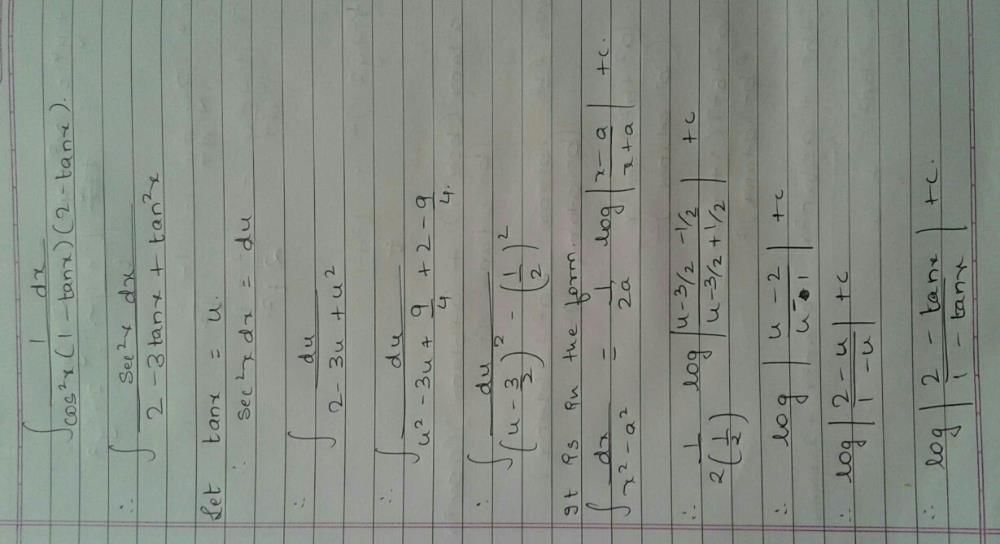 ∫ 1/(cos²x(1 - tanx)(2 - tanx)) dx
∴ ∫ sec²x dx/(2 - 3tanx + tan²x)
Let tanx = u.
∴ sec²x dx = du
∴ ∫ du/(2 - 3u + u²)
∴ ∫ du/(u² - 3u + 9/4 + 2 - 9/4.)
∴ ∫ du/((u - 3/2)² - (1/2)²)
It is in the form.
∫ dx/(x² - a²) = 1/2a log |(x - a)/(x + a)| + c.
∴ 1/(2(1/2)) log |(u - 3/2 - 1/2)/(u - 3/2 + 1/2)| + c
∴ log |(u - 2)/(u - 1)| + c
∴ log |(2 - u)/(1 - u)| + c
∴ log |(2 - tanx)/(1 - tanx)| + c.